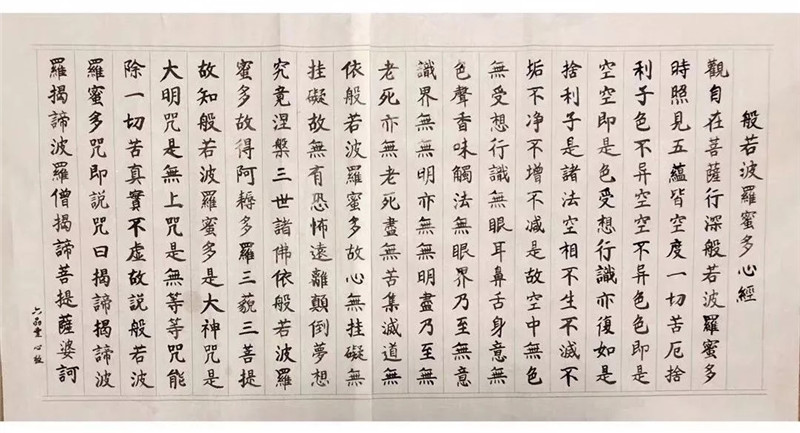 般若波羅蜜多心經
觀自在菩薩行深般若波羅蜜多
時照見五蘊皆空度一切苦厄捨
利子色不异空空不异色色即是
空空即是色受想行識亦復如是
捨利子是諸法空相不生不滅不
垢不净不增不减是故空中無色
無受想行識無眼耳鼻舌身意無
色聲香味觸法無眼界乃至無意
識界無無明亦無無明盡乃至無
老死亦無老死盡無苦集滅道無
依般若波羅蜜多故心無挂礙無
挂礙故無有恐怖遠離顛倒夢想
究竟涅槃三世諸佛依般若波羅
蜜多故得阿耨多羅三藐三菩提
故知般若波羅蜜多是大神咒是
大明咒是無上咒是無等等咒能
除一切苦真實不虛故説般若波
羅蜜多咒即説咒曰揭諦揭諦波
羅揭諦波羅僧揭諦菩提薩婆訶